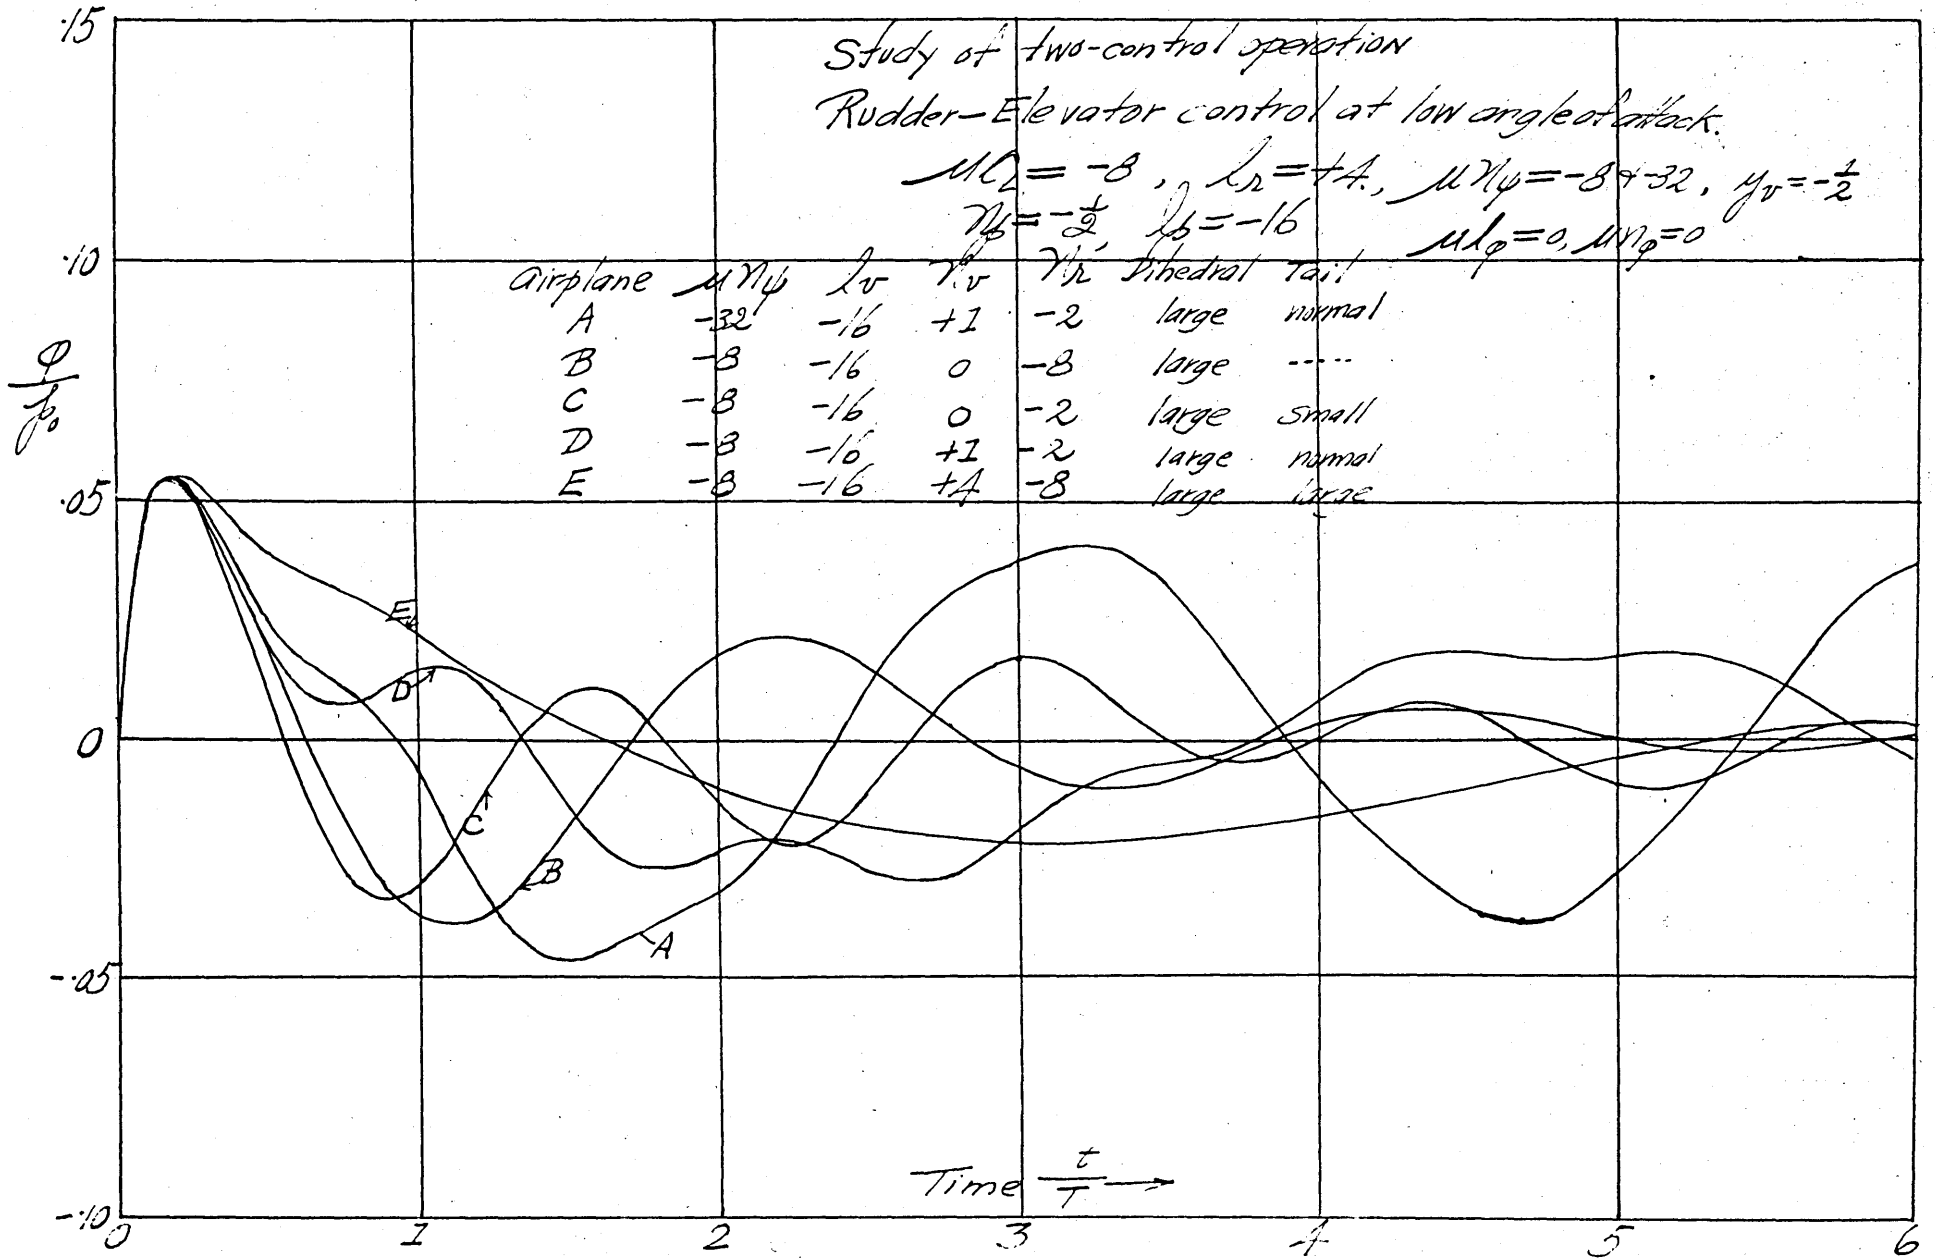 .15
Study of two-control operation
Rudder-Elevator control at low angle of attack.
μC_L = -8, l_r = +4, μn_ψ = -8 & -32, y_v = -1/2
n_p = -1/2, l_p = -16
μl_φ = 0, μn_φ = 0
.10
Airplane μn_ψ l_v n_v n_r Dihedral Tail
A -32 -16 +1 -2 large normal
B -8 -16 0 -8 large -----
C -8 -16 0 -2 large small
D -8 -16 +1 -2 large normal
E -8 -16 +4 -8 large large
φ/p₀
.05
E
D
0
C
B
A
-.05
Time t/T →
-.10
0 1 2 3 4 5 6